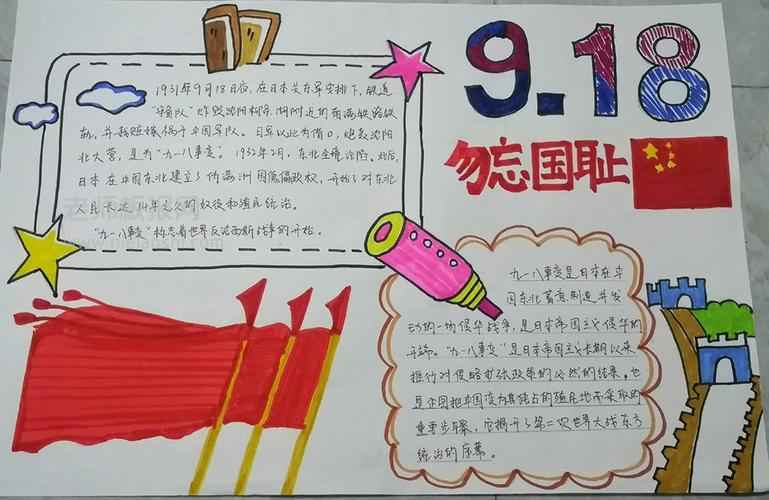 9.18
勿忘国耻
1931年9月18日夜，在日本关东军安排下，铁道
"守备队"炸毁沈阳柳条湖附近的南满铁路铁
轨，并栽赃嫁祸于中国军队。日军以此为借口，炮轰沈阳
北大营，是为"九一八事变"。1932年2月，东北全境沦陷。此后，
日本在中国东北建立了伪满洲国傀儡政权，开始了对东北
人民长达14年之久的奴役和殖民统治。
"九一八事变"标志着世界反法西斯战争的开始。
九一八事变是日本在中
国东北蓄意制造并发
动的一场侵华战争，是日本帝国主义侵华的
开端。"九一八事变"是日本帝国主义长期以来
推行对侵略扩张政策的必然的结果，也
是企图把中国变为其独占的殖民地而采取的
重要步骤。它揭开了第二次世界大战东方
统治的序幕。
老师板报网